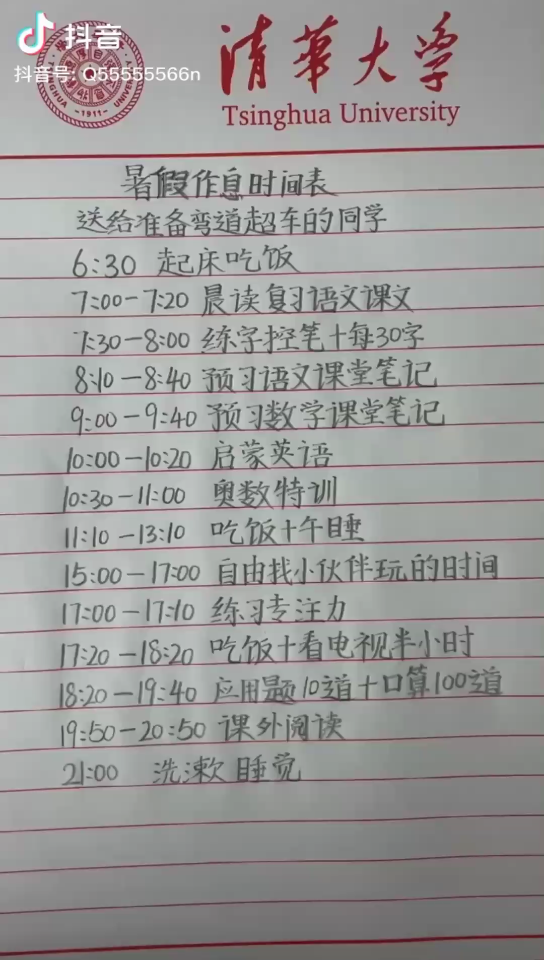 抖音
抖音号: Q55555566n
清华大学
Tsinghua University
1911
暑假作息时间表
送给准备弯道超车的同学
6:30 起床吃饭
7:00-7:20 晨读复习语文课文
7:30-8:00 练字控笔+每30字
8:10-8:40 预习语文课堂笔记
9:00-9:40 预习数学课堂笔记
10:00-10:20 启蒙英语
10:30-11:00 奥数特训
11:10-13:10 吃饭+午睡
15:00-17:00 自由找小伙伴玩的时间
17:00-17:10 练习专注力
17:20-18:20 吃饭+看电视半小时
18:20-19:40 应用题10道+口算100道
19:50-20:50 课外阅读
21:00 洗漱睡觉